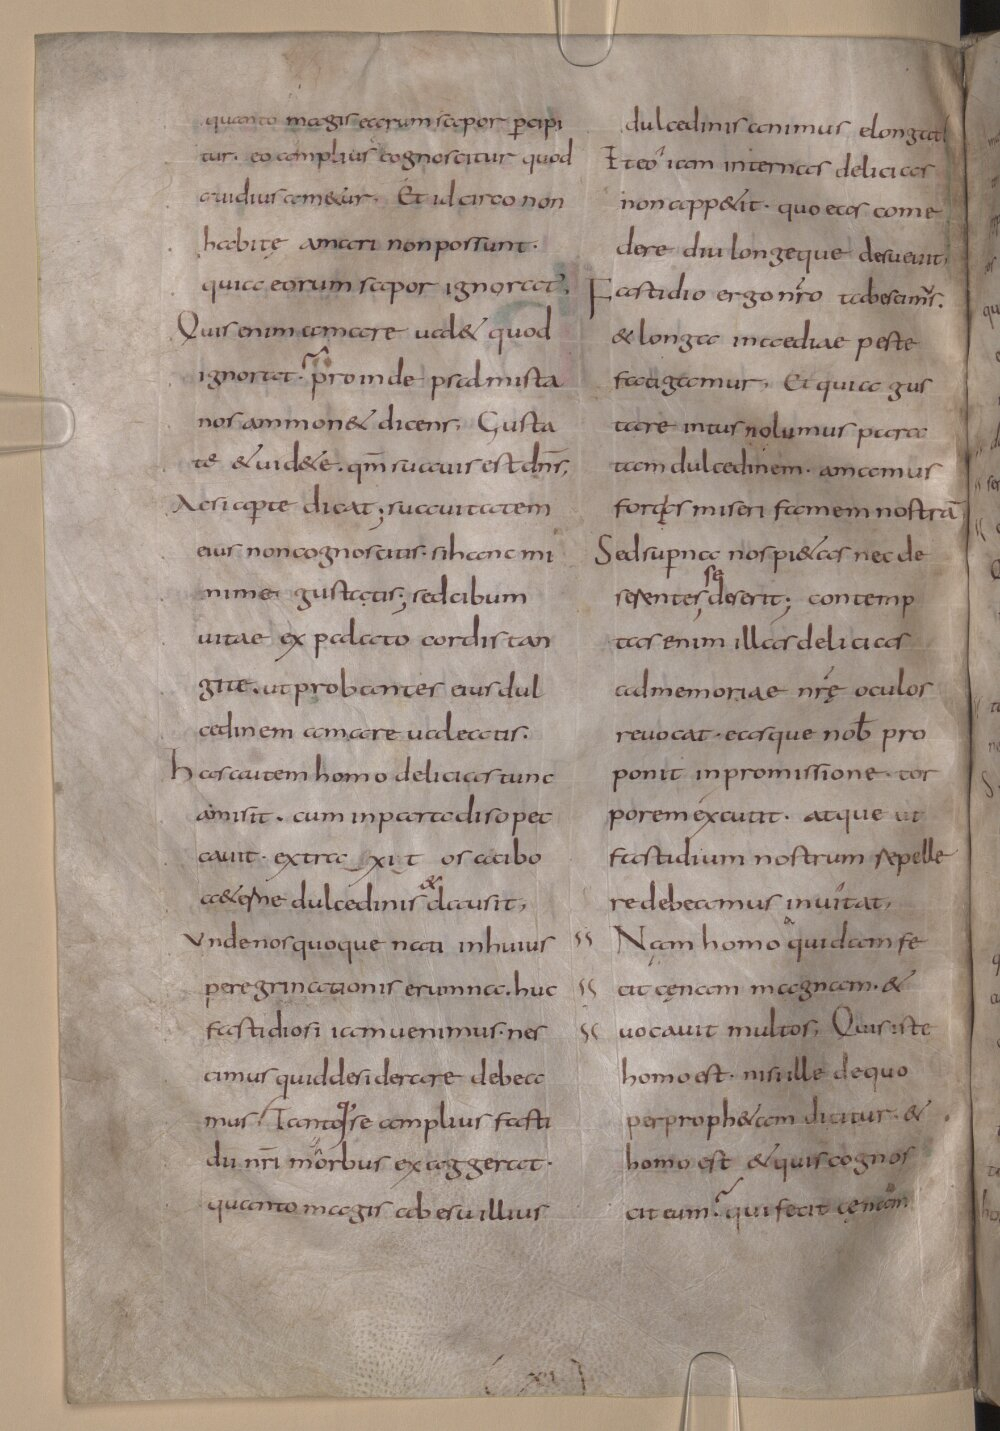 quanto magis earum sapor p̱cipi
tur· eo amplius cognoscitur quod
auidius am&ur· Et idcirco non
habitę amari non possunt·
quia eorum sapor ignorat᷑·
Quis enim amare uad& quod
ignorat· proinde psalmista
nos ammon& dicens, Gusta
te &uid&e· qm̄ suauis est dn̄s,
Ac si aꝑte dicat; suauitatem
eius non cognoscitis· si hanc mi
nime gustatis; sed cibum
uitae ex palato cordis tan
gite· ut probantes eius dul
cedinem amare ualeatis·
has autem homo delicias tunc
amisit· cum in paradiso pec
cauit· extra xiit os a cibo
a&ernę dulcedinis clausit,
Vnde nos quoque nati in huius
peregrinationis erumna· huc
fastidiosi iam uenimus· nes
cimus quid desiderare debea
mus Tantoq; se amplius fasti
dii nr̄i morbus exaggerat·
quanto magis ab esu illius
dulcedinis animus elongat
Et eo iam internas delicias
non app&it· quo eas come
dere diu longeque desueuit,
Fastidio ergo nr̄o tabescim᷒s·
& longa inaediae peste
fatigamur, Et quia gus
tare intus nolumus para
tam dulcedinem· amamus
foras miseri famem nostrā
Sed sup̱na nos pi&as nec de
serentes se deserit; contemp
tas enim illas delicias
ad memoriae nr̄ę oculos
reuocat· easque nob̄ pro
ponit in promissione· tor
porem excutit· atque ut
fastidium nostrum repelle
re debeamus inuitat,
Nam homo quidam fe
cit cęnam magnam· &
uocauit multos, Quis iste
homo est· nisi ille de quo
per proph&am dicitur· &
homo est &quis cognos
cit eum· qui fecit cęnam
XI